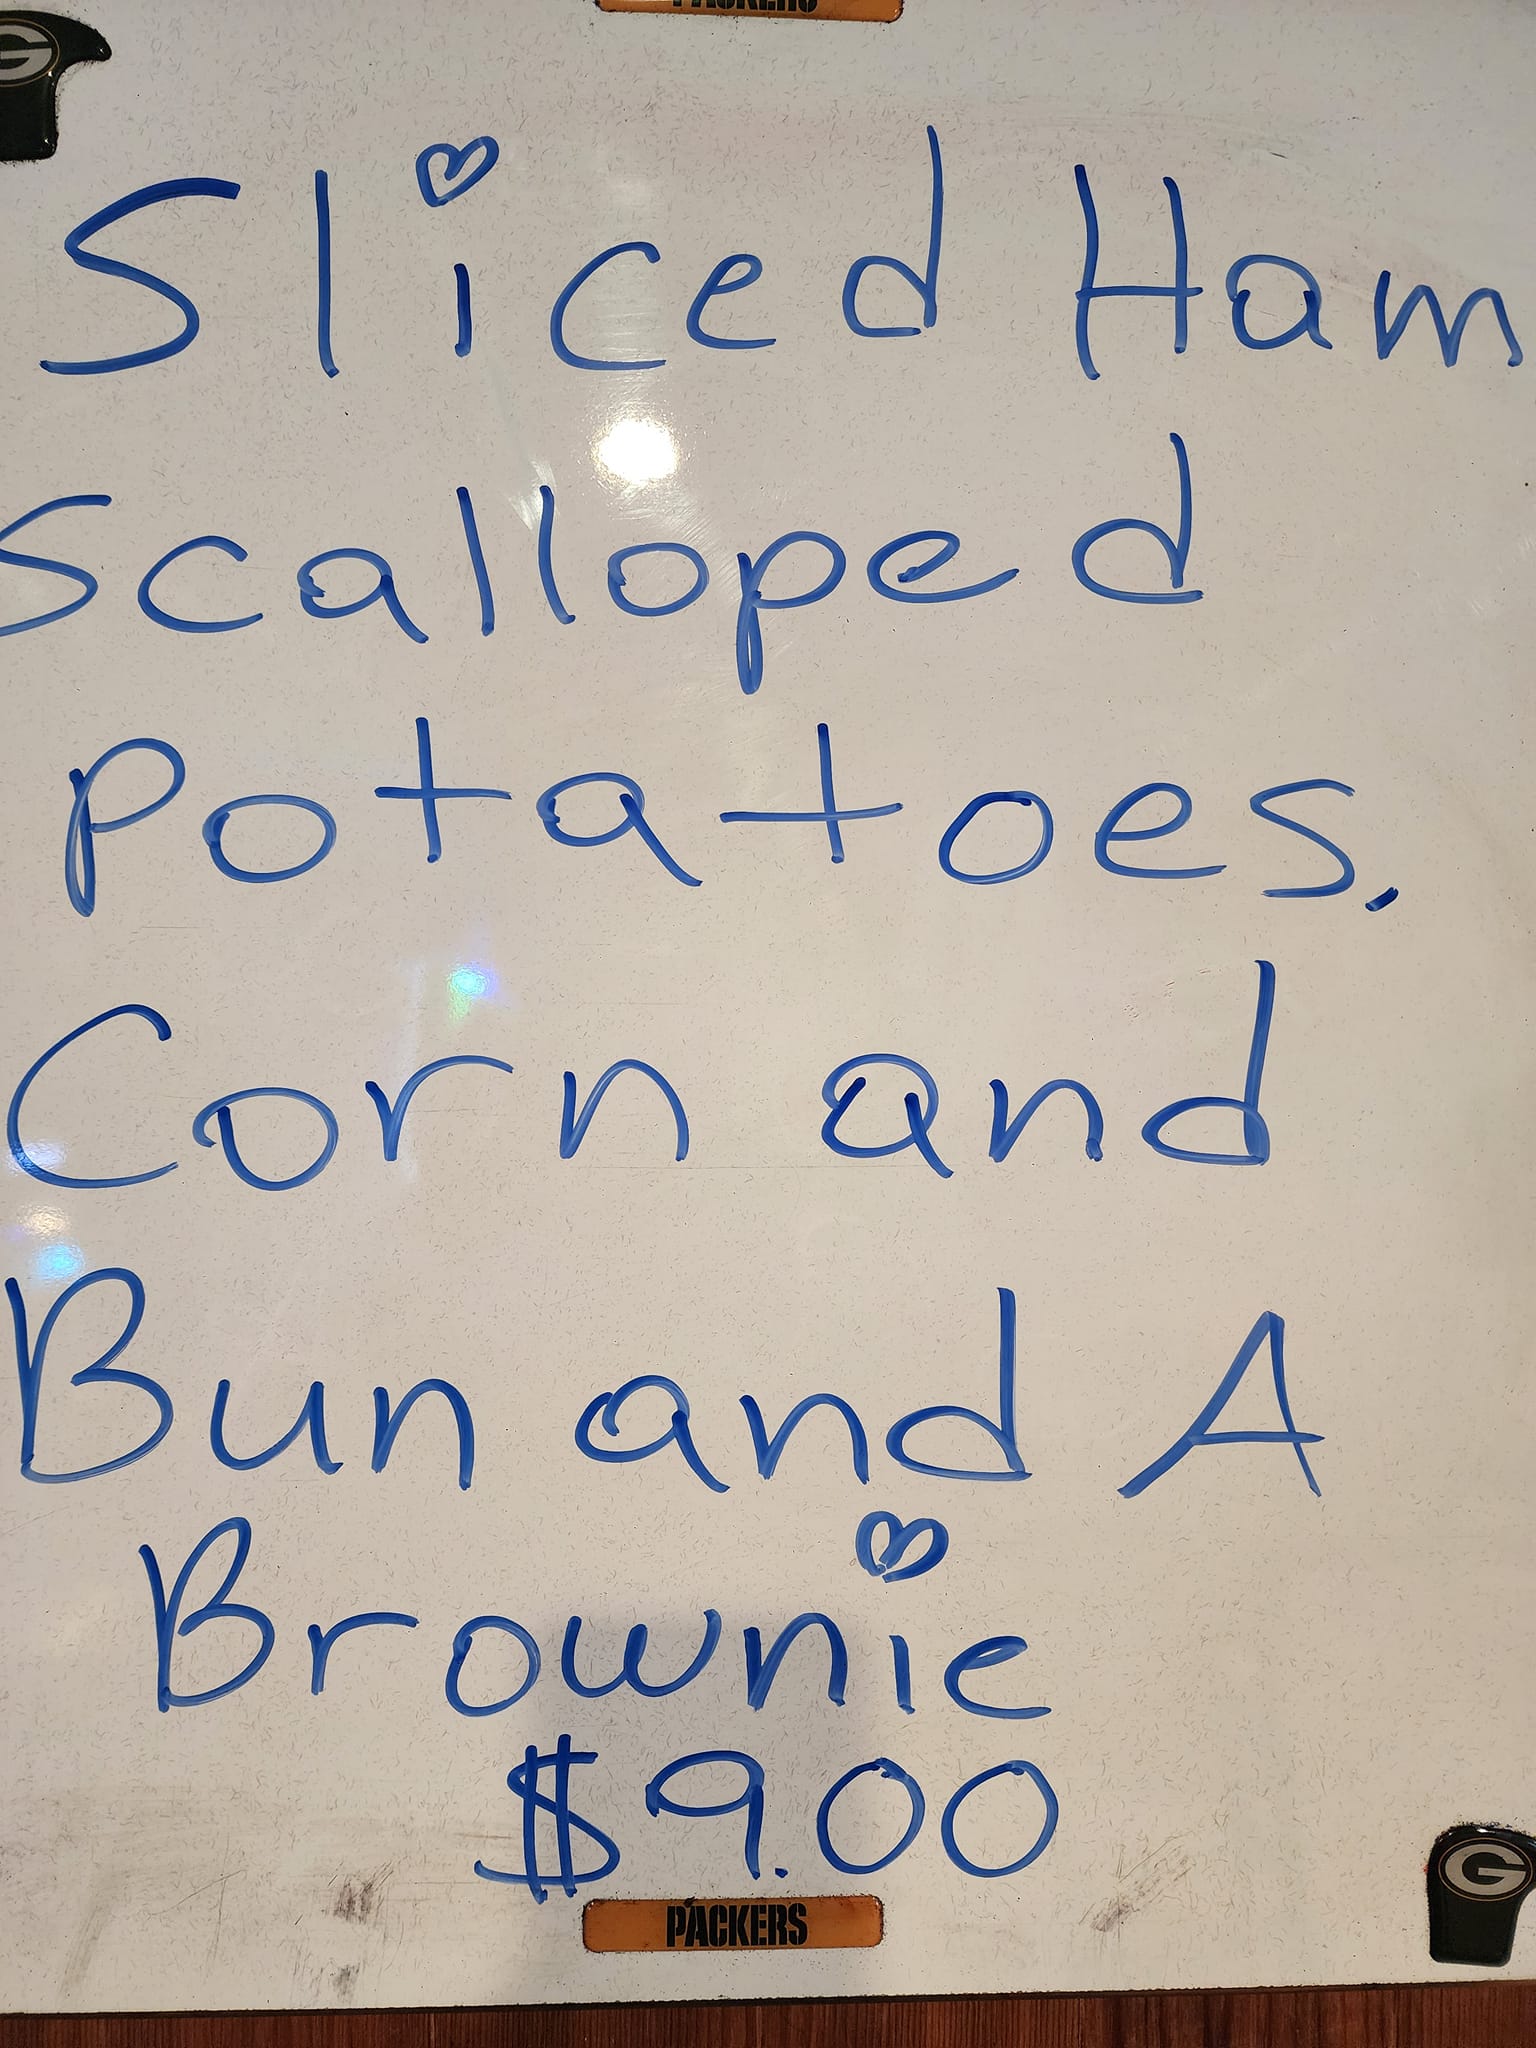 PACKERS
G
Sliced Ham
Scalloped
Potatoes.
Corn and
Bun and A
Brownie
$9.00
PACKERS
G